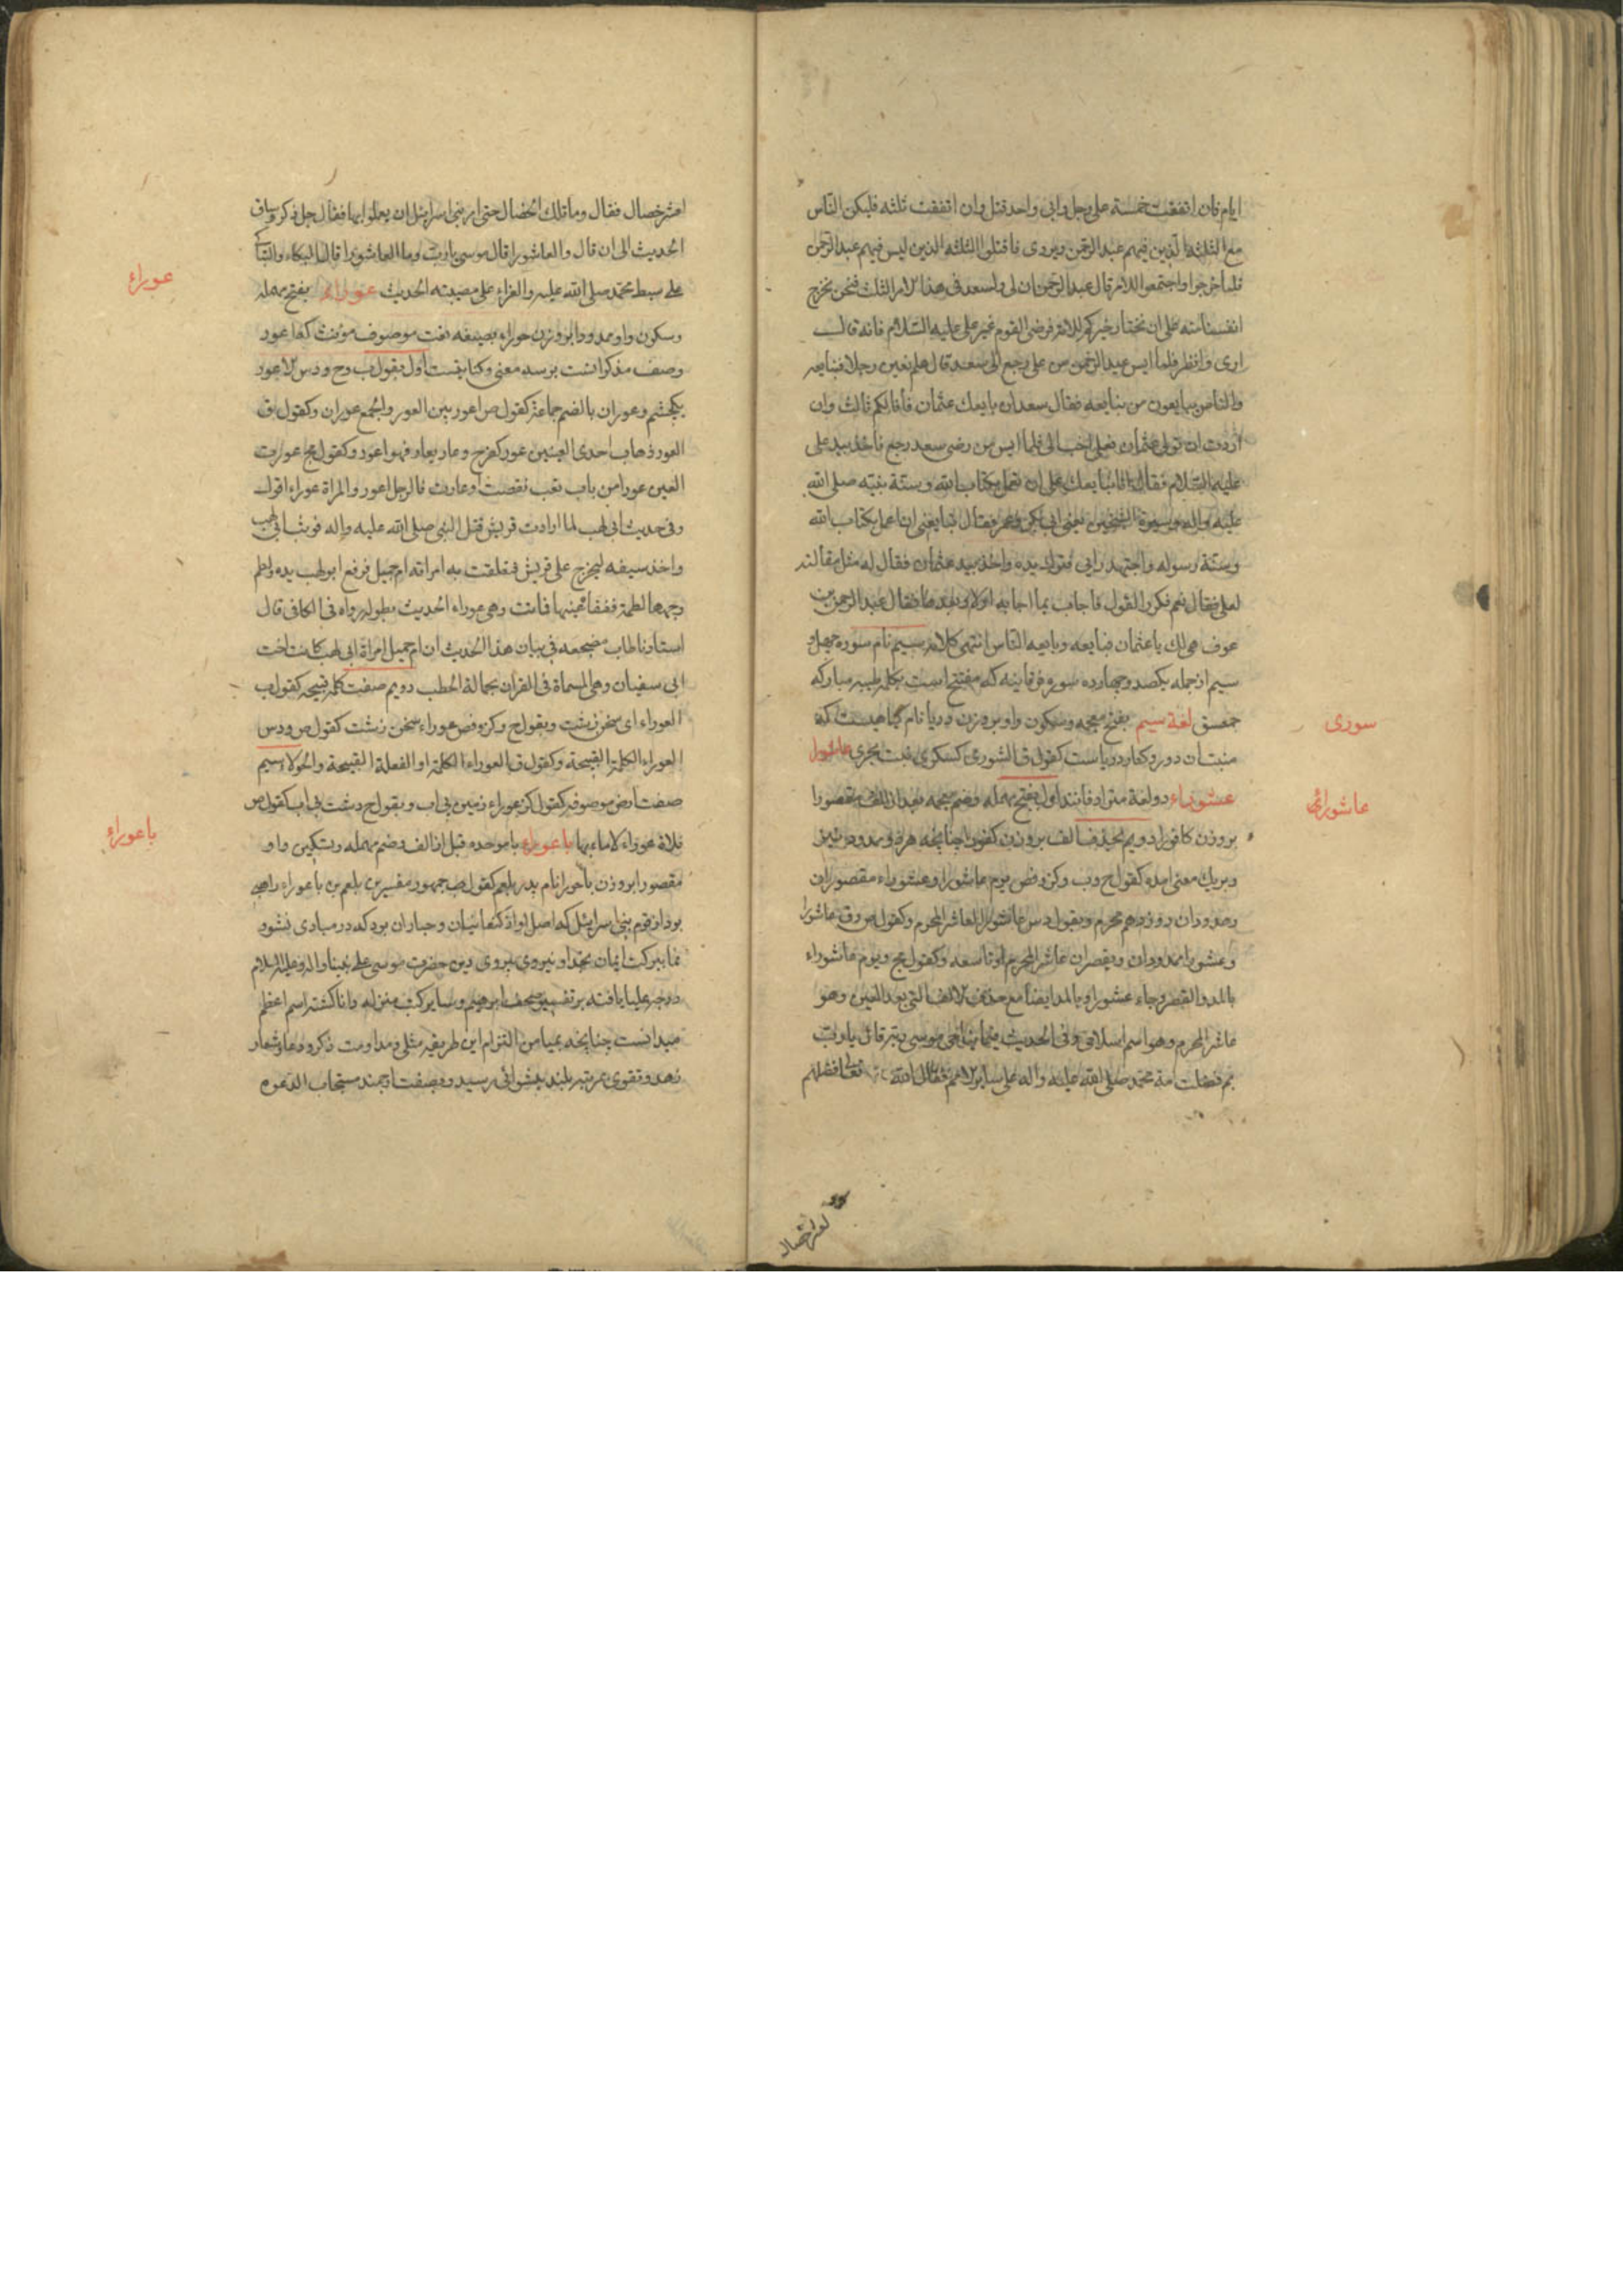 ايام فان اتفقت خمسة على رجل وابى واحد قتل وان اتفقت ثلثه فليكن الناس
مع الثلثة الذين فيهم عبد الرحمن ويروى فاقتلوا الثلثه الذين ليس فيهم عبد الرحمن
فلما خرجوا واجتمعوا للامر قال عبد الرحمن ان لى ولسعد فى هذا الامر الثلث فنحن نخرج
انفسنا منه على ان نختار خيركم للامة فرضى القوم غير على عليه السلام فانه قال
ارى وانظر فلما ايس عبد الرحمن من على رجع الى سعد قال هلم نعين رجلا فنبايعه
والناس يبايعون من بنايعه فقال سعد ان بايعك عثمان فأنا لكم ثالث وان
اردت ان تولى عثمان فعلى احب الى فلما ايس من رضى سعد رجع فأخذ بيد على
عليه السلام فقال ابايعك على ان تعمل بكتاب الله وسنة نبيه صلى الله
عليه واله وسيرة الشيخين يعنى ابى بكر وعمر فقال تبايعنى ان اعمل بكتاب الله
وسنة رسوله واجتهد رايى فترك يده واخذ بيد عثمان فقال له مثل مقالته
لعلى فقال نعم فكرر القول فاجاب بما اجابه اولا وبعدها فقال عبد الرحمن بن
عوف هى لك يا عثمان فبايعه وبايعه الناس انتهى كلامه سيم نام سوره چهل و
سيم از جمله يكصد وچهارده سوره فرقانيه كه مفتتح است بكلمه طيبه مباركه
حمعسق لغة سيم بفتح معجمه وسكون واو بر وزن دريا نام گياهيست كه
منبت ان دور وكنار درياست كقول ق الشورى كسكرى نبت بحرى عاشورا
عشوراء دو لغة مترادفانند اول بفتح مهمله وضم معجمه بعد از الف مقصورا
بر وزن كافورا دويم بحذف الف بر وزن كفورا چنانچه هر دو ممدود نيز
وبريك معنى امده كقول ح وب وكز وفص يوم عاشورا وعشوراء مقصوران
وممدودان روز دهم محرم وبقول دس عاشورا العاشر المحرم وكقول ص وق عاشورا
وعشورا ممدودان ويقصران عاشر المحرم او تاسعه وكقول مج ويوم عاشوراء
بالمد والقصر وجاء عشورا وبالمد ايضا مع حذف الالف التى بعد العين وهو
عاشر المحرم وهو اسم اسلامى وفى الحديث مناجاة موسى ربه قال يا رب
بم فضلت امة محمد صلى الله عليه واله على ساير الامم فقال الله تعالى فضلهم
سورى
عاشورائى
لعشر خصال
لعشر خصال فقال وما تلك الخصال حتى امر بنى اسرائيل ان يعملوا بها فقال جل ذكره وساق
الحديث الى ان قال والعاشورا قال موسى يا رب وما العاشورا قال البكاء والتباكى
على سبط محمد صلى الله عليه والعزاء على مصيبته الحديث عوراء بفتح مهمله
وسكون واو ممدودا بر وزن حوراء بصيغه نعت موصوف مونث كفا عور
وصف مذكر انست بر سه معنى وكنايتست اول بقول ب وح ودس الاعور
يكچشم وعوران بالضم جماعة كقول ص اعور بين العور والجمع عوران وكقول ق
العور ذهاب احدى العينين عور كفرح وعار يعار فهو اعور وكقول مج عورت
العين عورا من باب تعب نقصت او غارت فالرجل اعور والمراة عوراء اقول
وفى حديث ابى لهب لما ارادت قريش قتل النبى صلى الله عليه واله فوثب ابى لهب
واخذ سيفه ليخرج على قريش فتعلقت به امراته ام جميل فرفع ابو لهب يده ولطم
وجهها لطمة ففقا عينها فماتت وهى عوراء الحديث بطوله رواه فى الكافى قال
استادنا طاب مضجعه فى بيان هذا الحديث ان ام جميل امراة ابى لهب كانت اخت
ابى سفيان وهى المسماة فى القران بحمالة الحطب دويم صفت كلمه قبيحه كقول ب
العوراء اى سخن زشت وبقول ح وكز وفص عوراء سخن زشت كقول ص ودس
العوراء الكلمة القبيحة وكقول ق العوراء الكلمة او الفعلة القبيحة والحولاء سيم
صفت ارض موصوفه كقول كز عوراء زمين بى اب وبقول ح دشت بى اب كقول ص
فلاة عوراء لا ماء بها باعوراء با موحده قبل از الف وضم مهمله وتسكين واو
مقصورا بر وزن باحورا نام پدر بلعم كقول ص جمهور مفسرين بلعم بن باعوراء راهبى
بود از قوم بنى اسرائيل كه اصل او از كنعانيان وجباران بود كه در مبادى نشوو
نما ببركت ايمان بخدا ونيروى پيروى دين حضرت موسى على نبينا واله وعليه السلام
درجه عليا يافته بر تفسير صحف ابراهيم وساير كتب منزله دانا گشته اسم اعظم
ميدانست چنانچه بميامن التزام اين طريقه مثلى ومداومت ذكر ودعا وشعار
زهد وتقوى بمرتبه بلند پيشوائى رسيد وبصفت ارجمند مستجاب الدعوه
عوراء
باعوراء